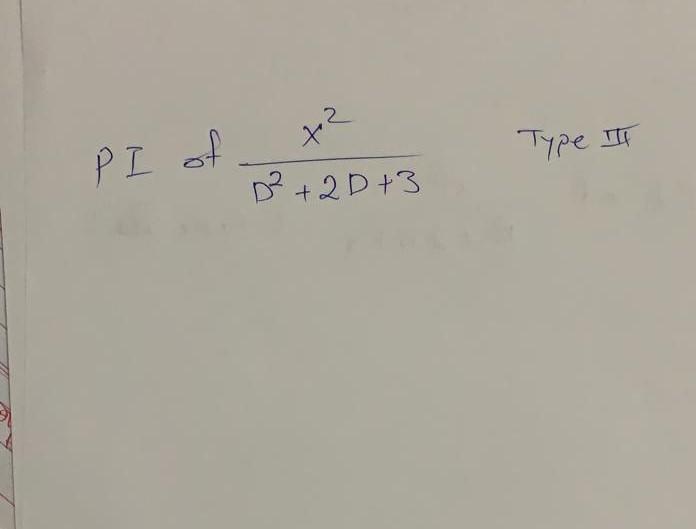 PI of x²/D²+2D+3 Type III